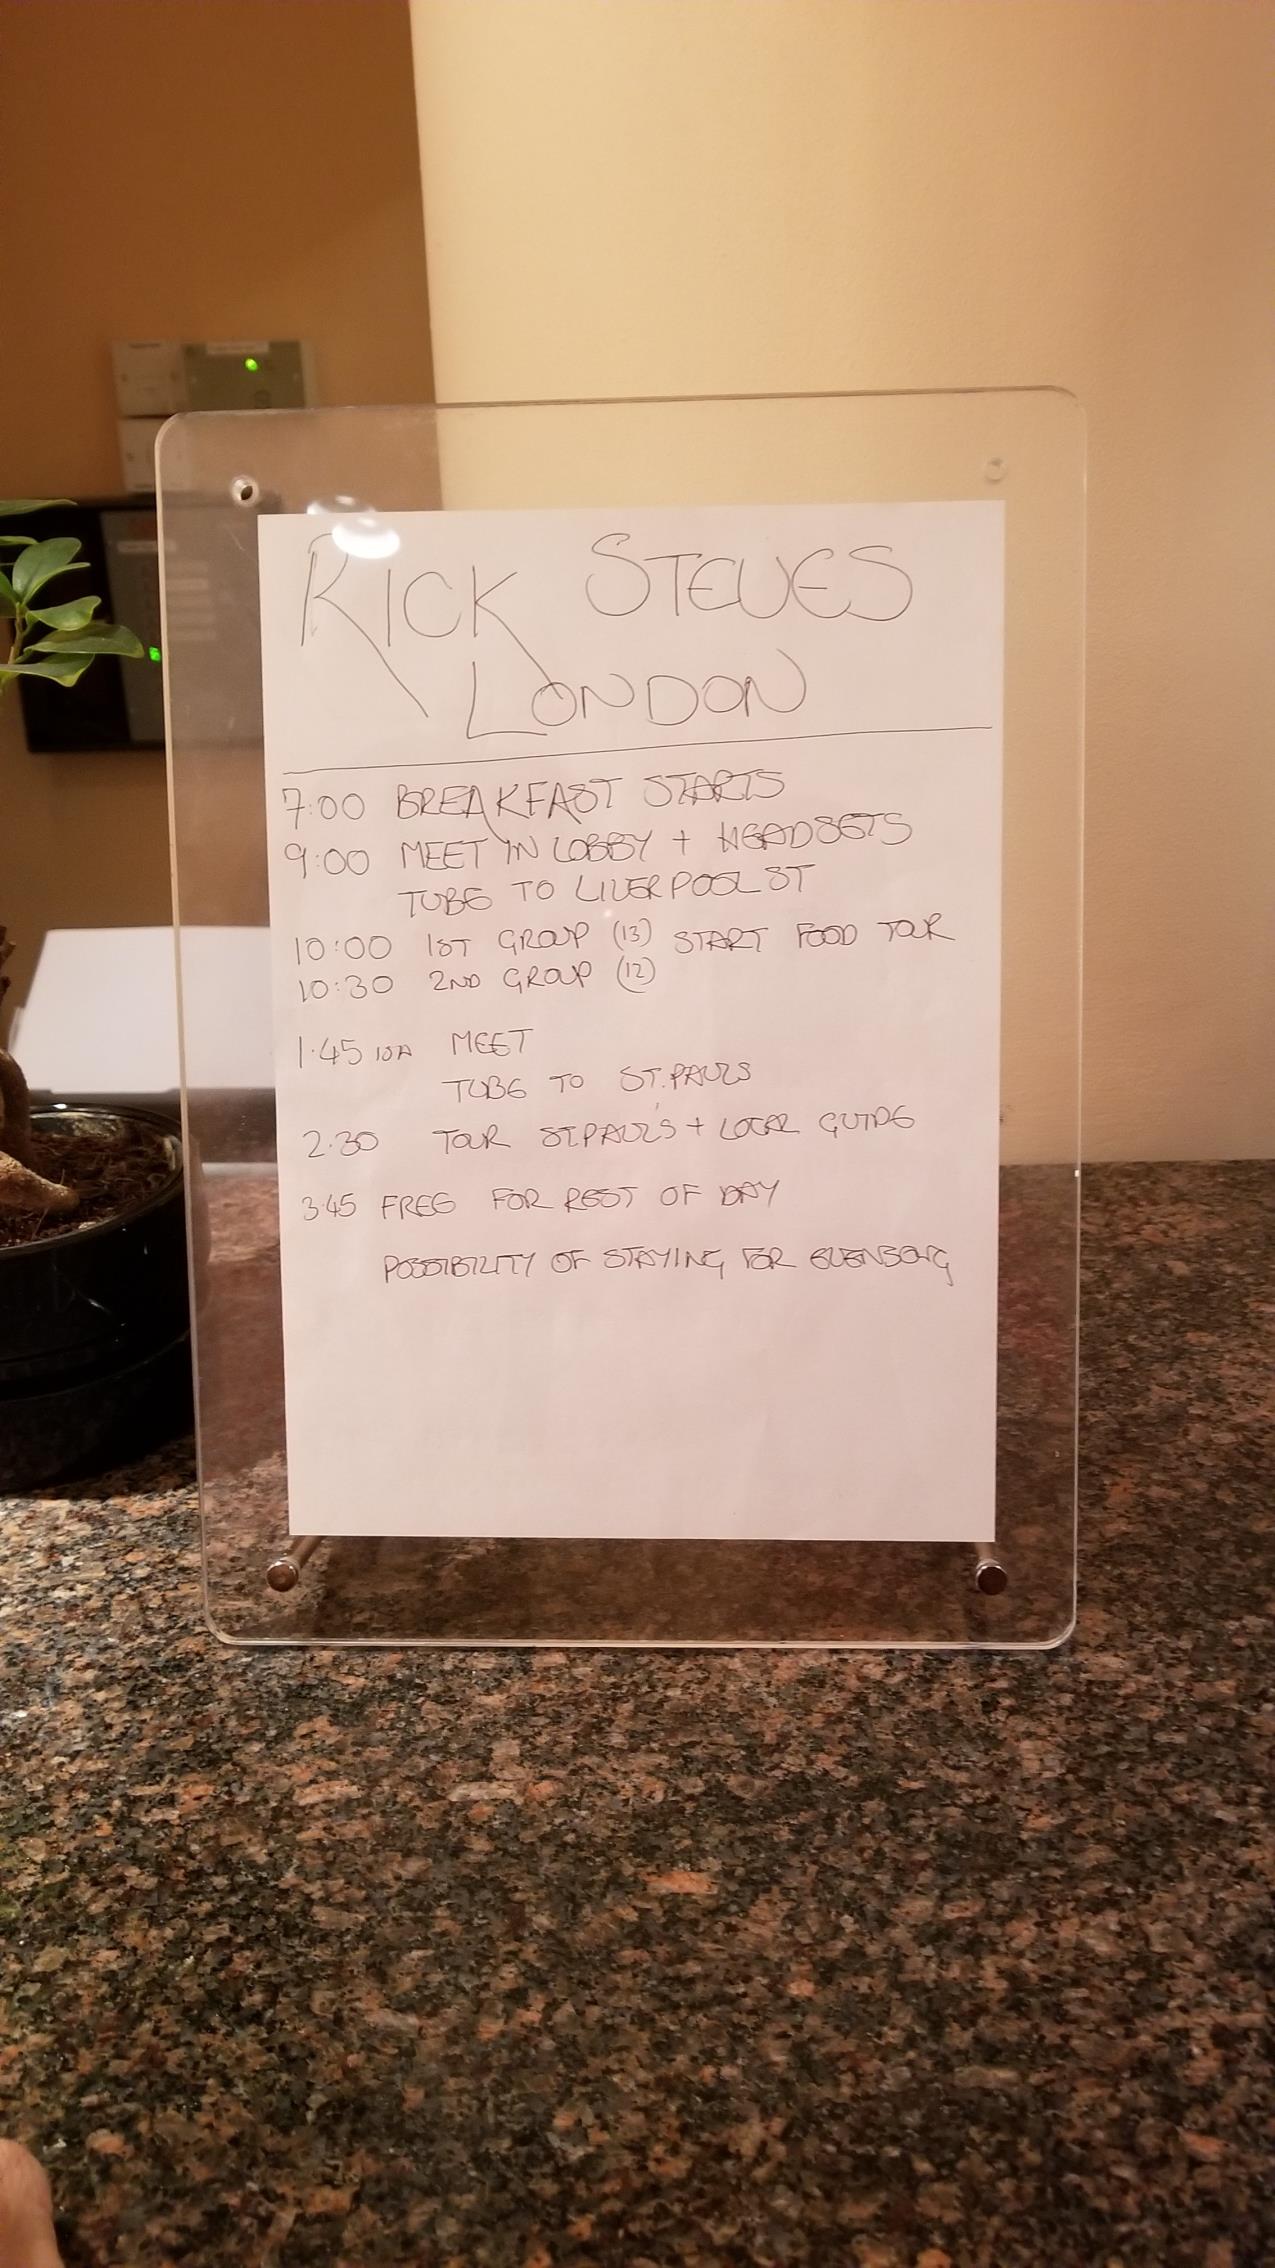 RICK STEVES
LONDON
7:00 BREAKFAST STARTS
9:00 MEET IN LOBBY + HEADSETS
TUBE TO LIVERPOOL ST
10:00 1ST GROUP (13) START FOOD TOUR
10:30 2ND GROUP (12)
1.45 MEET
TUBE TO ST. PAULS
2.30 TOUR ST. PAUL'S + LOCAL GUIDE
3.45 FREE FOR REST OF DAY
POSSIBILITY OF STAYING FOR EVENSONG